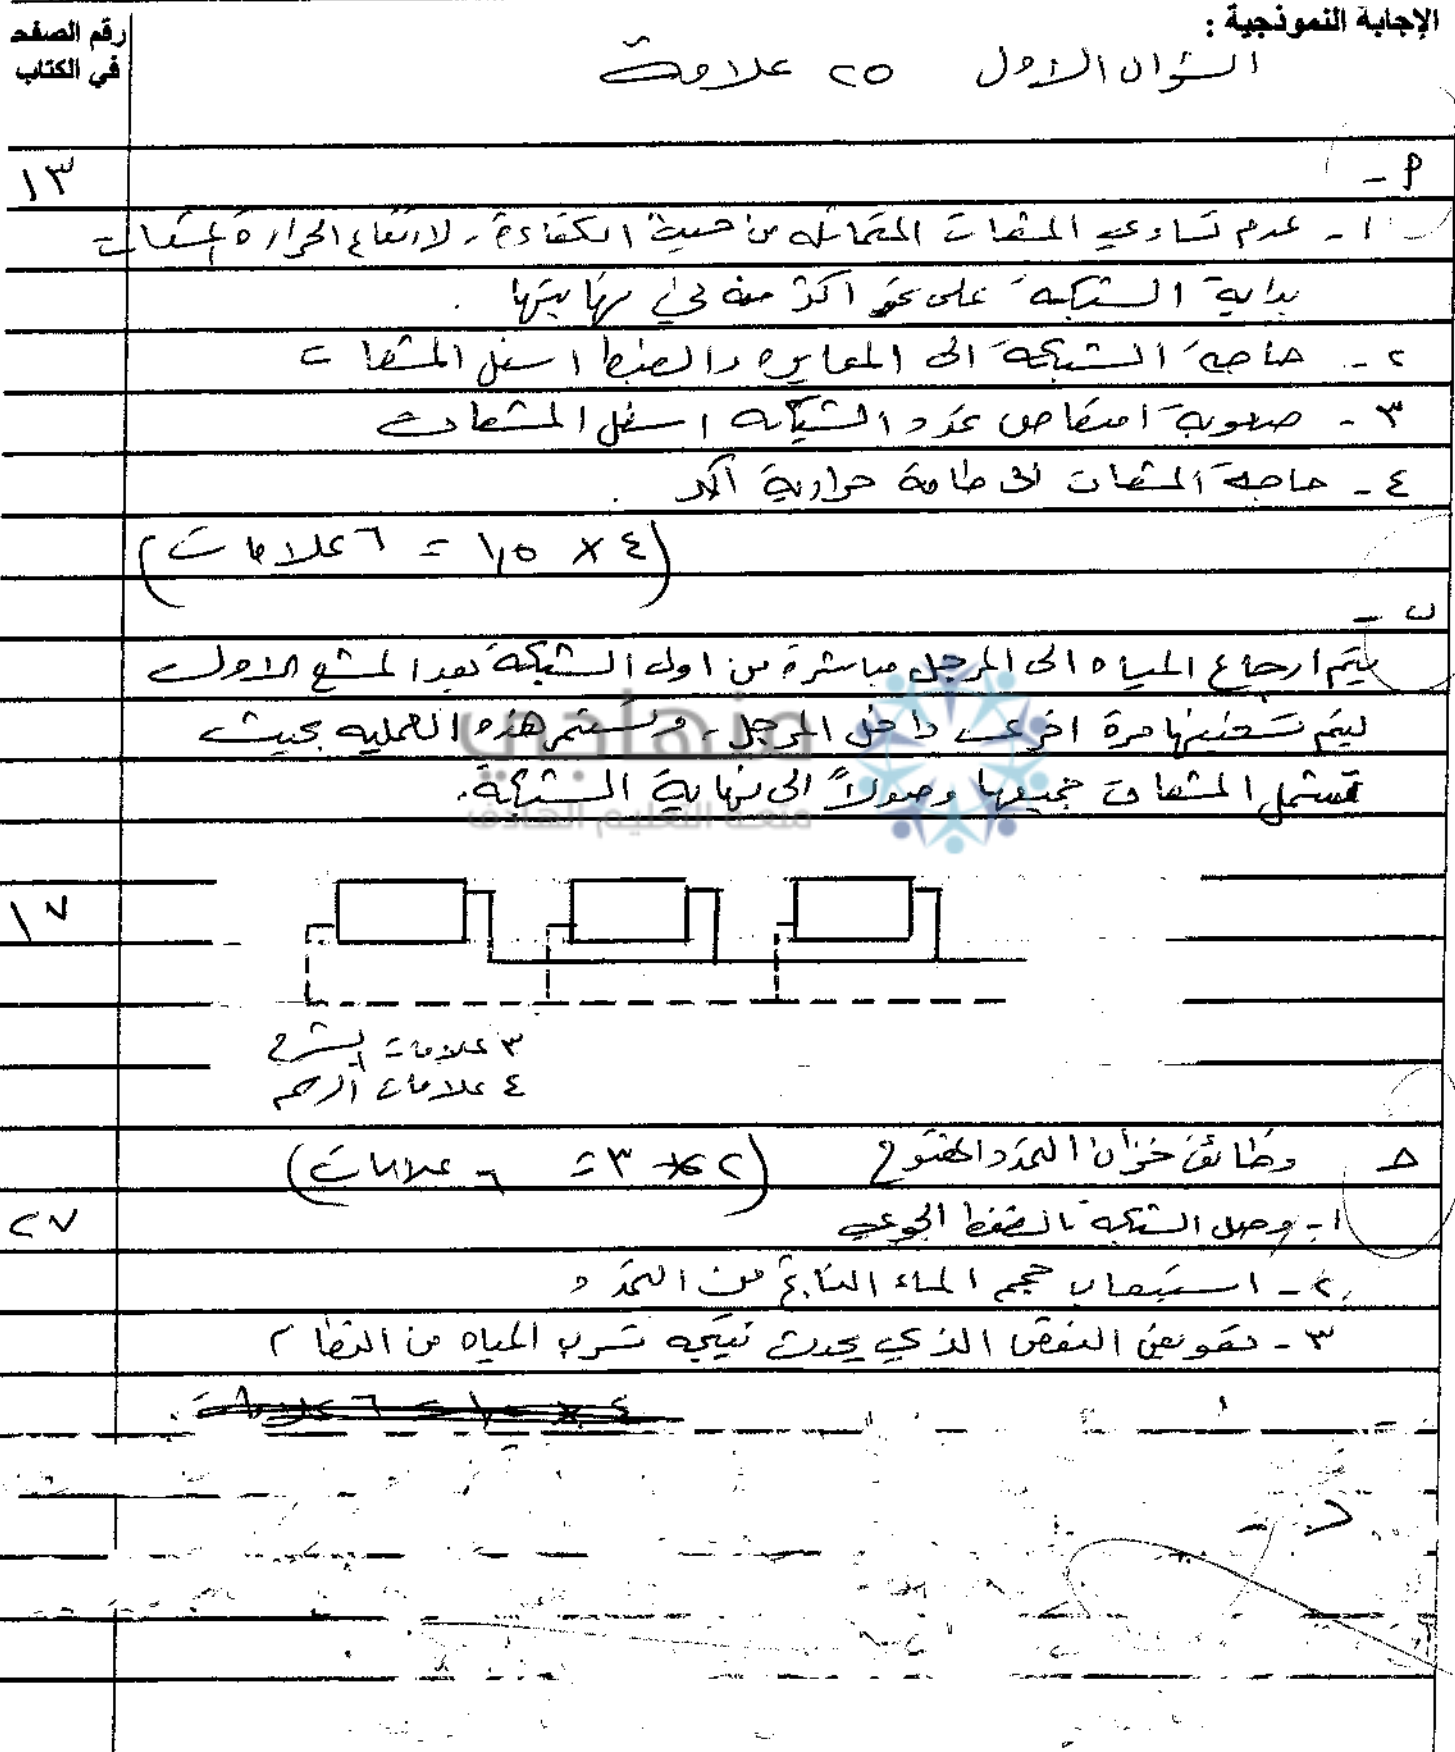 الإجابة النموذجية :
رقم الصفحة
في الكتاب
السؤال الاول ٢٥ علامة
١٣
أ -
١ - عدم تساوي المشعات المتماثله من حيث الكفاءة، لارتفاع الحرارة المشعات
بداية الشبكة على نحو اكثر منه في نهايتها .
٢ - حاجة الشبكة الى المعايره والضبط اسفل المشعات
٣ - صعوبة امتصاص تمدد الشبكه اسفل المشعات
٤ - حاجة المشعات الى طاقة حرارية اكبر .
(٤ × ١,٥ = ٦ علامات)
ب -
يتم ارجاع المياه الى المرجل مباشرة من اول الشبكة بعد المشع الاول
ليتم تسخينها مرة اخرى داخل المرجل، وتستمر هذه العمليه بحيث
تشمل المشعات جميعها وصولاً الى نهاية الشبكة.
منهاجي
متعة التعليم الهادف
١٧
٣ علامات الشرح
٤ علامات الرسم
ج وظائف خزان التمدد المفتوح (٢ × ٣ = ٦ علامات)
٢٧
١ - وصل الشبكة بالضغط الجوي
٢ - استيعاب حجم الماء الناتج من التمدد
٣ - تعويض النقص الذي يحدث نتيجه تسرب المياه من النظام
د -